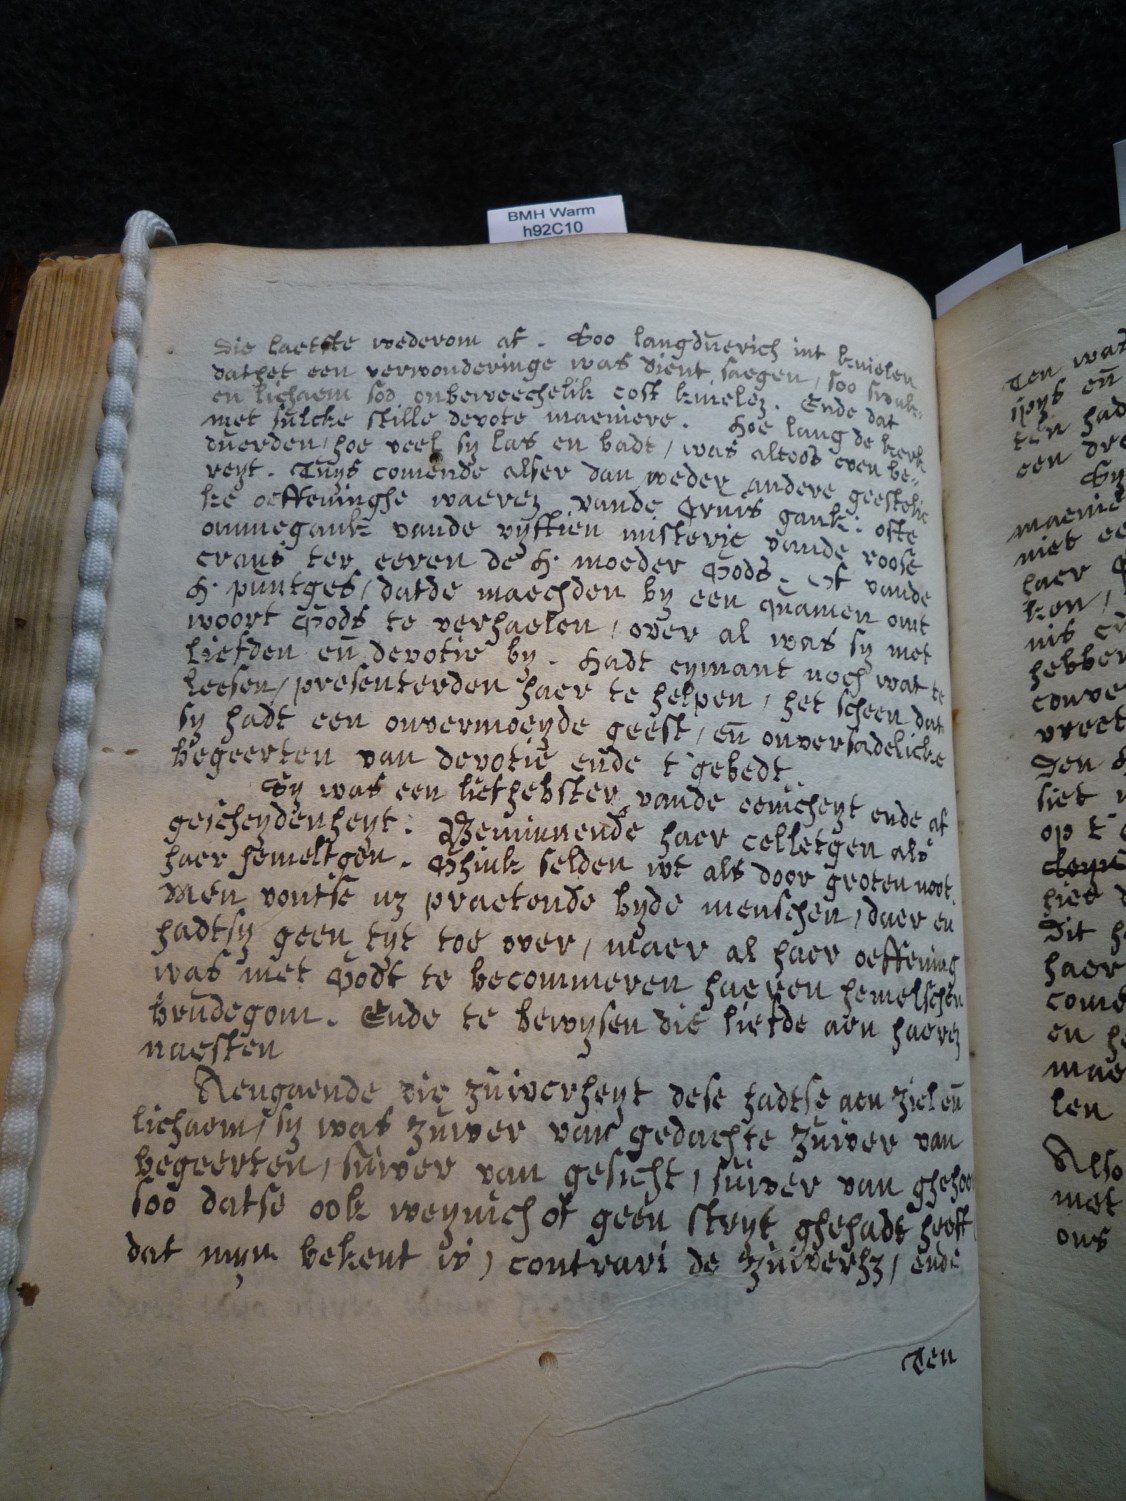 BMH Warm
h92C10
Die laetste wederom af. Soo langduerich int knielen
dathet een verwonderinge was dient saegen, soo
en lichaem soo onbeweechelik cost knielen. Ende dat
met sulcke stille devote maeniere. Hoe lang de kerk
duerden, hoe veel sy las en badt, was altoos even be-
reyt. Tuys comende alser dan weder andere geesteli-
ke oeffeninghe waeren vande Cruis gank: ofte
ommegank vande vyftien misterie vande roose
crans ter eeren de H. moeder Gods. Of vande
H. puntges, datde maechden by een quamen omt
woort Gods te verhaelen, over al was sy met
liefden en̄ devotie by. Hadt eymant noch wat te
leesen, presenterden haer te helpen, het scheen dat
sy hadt een onvermoeyde geest, en̄ onversadelicke
begeerten van devotie ende t'gebedt.
Sy was een liefhebster vande eenicheyt ende af
gescheydenheyt. Beminnende haer celletgen als
haer hemeltgen. Ghink selden wt als door groten noot.
Men vontse nz praetende byde menschen, daer en
hadtsy geen tyt toe over, maer al haer oeffening
was met Godt te becommeren haeren hemelschen
brudegom. Ende te bewysen die liefde aen haeren
naesten
Aengaende die zuiverheyt dese hadtse aen ziel en̄
lichaem, sy was zuiver van gedachte zuiver van
begeerten, suiver van gesicht, suiver van ghehoor
soo datse ook weynich of geen stryt ghehadt heeft
dat myn bekent is, contrari de zuiverhz, ende
Ten
Ten
ijeys en̄
ten had
een
Sy
niet ee
laer
ken,
nis
hebben
conve
vreet
Den
siet
op t'
hier
Dit
haer
come
en he
mae
len
Also
met
ons